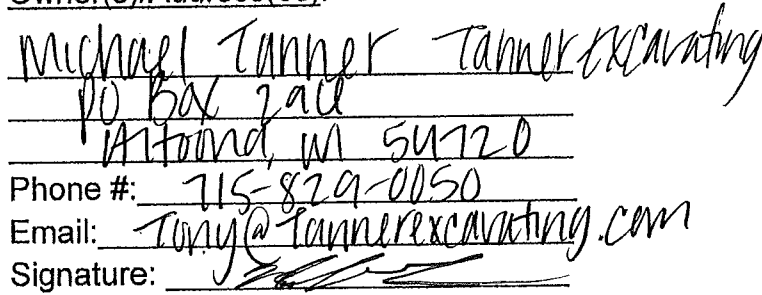 Owner(s)/Address(es):
Michael Tanner Tanner Excavating
PO Box
Altoona, WI 54720
Phone #: 715-829-0050
Email: Tony@Tannerexcavating.com
Signature: